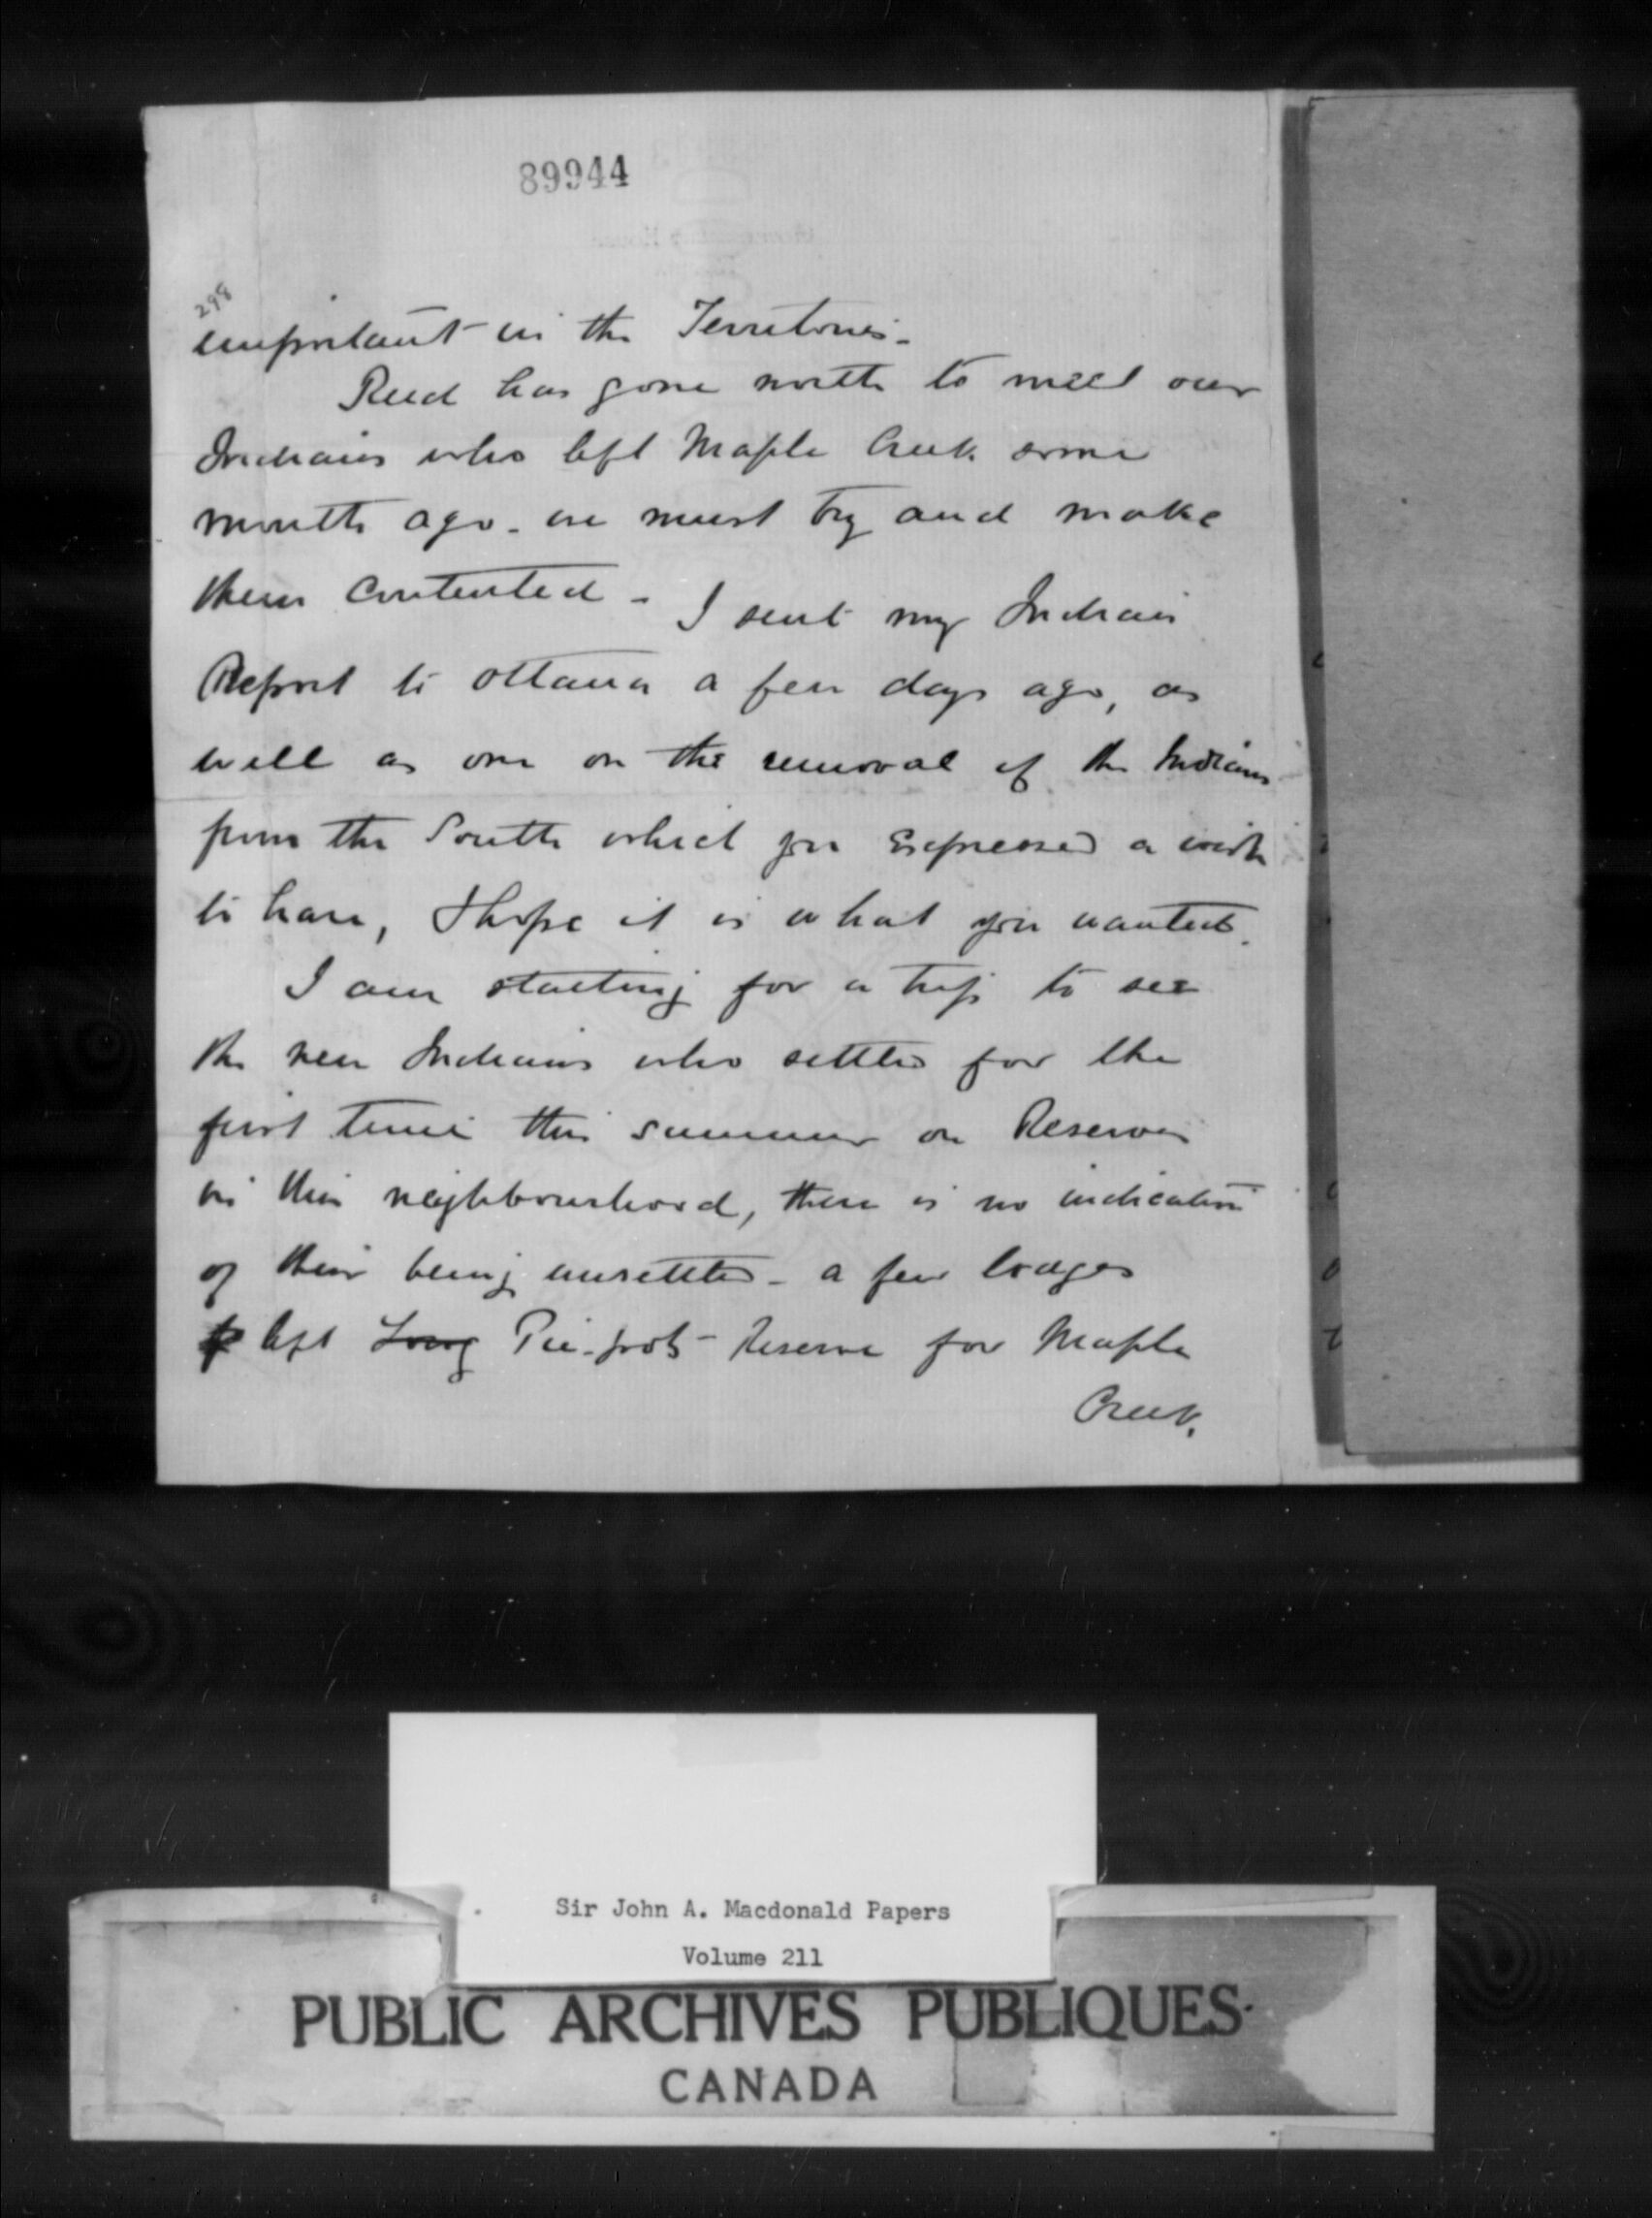 89944
298
important in the Territories.
Reed has gone north to meet our
Indians who left Maple Creek some
month ago. we must try and make
them contented - I sent my Indian
Report to Ottawa a few days ago, as
well as one on the removal of the Indians
from the South which you expressed a wish
to have, I hope it is what you wanted.
I am starting for a trip to see
the new Indians who settled for the
first time this summer on Reserves
in this neighbourhood, there is no indication
of their being unsettled - a few lodges
left Long Pie-pots Reserve for Maple
Creek.
Sir John A. Macdonald Papers
Volume 211
PUBLIC ARCHIVES PUBLIQUES
CANADA